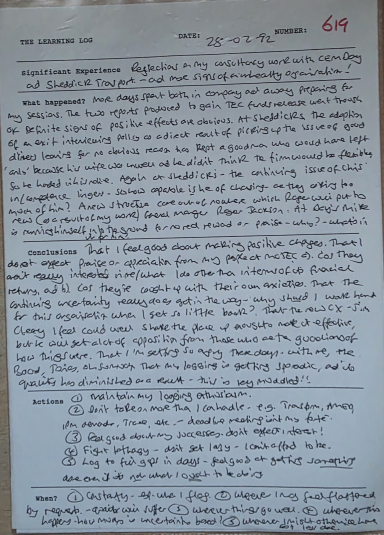 619
THE LEARNING LOG DATE: 28-02-92 NUMBER:
Significant Experience Reflections on my consultancy work with CEM Day
and Sheddick Transport - and more signs of an unhealthy organisation!
What happened? More days spent both in company and away preparing for
my sessions. The two reports produced to gain TEC funds release went through
OK. Definite signs of positive effects are obvious. At Sheddicks. The adoption
of an exit interviewing policy as a direct result of picking up the issue of good
drivers leaving for no obvious reason has kept a good man who would have left
'only' because his wife was and he didn't think the firm would be flexible
So he handed in his notice. Again at Sheddicks - the continuing issue of Chris'
competence - is how capable is he of changing as they asking too
much of him? A new structure came out of nowhere which Roger was put to
new (as a result of my work) general manager Roger Jackson. At Days Mike
is running himself into the ground for no real reward or praise - why? - what's in
Conclusions That I feel good about making positive changes. That I
don't expect praise or appreciation from my part at TEC a). Cos they
aren't really interested in me/what I do other than in terms of its financial
return, and b) Cos they're caught up with their own anxieties. That the
continuing uncertainty really does get in the way - why should I work hard
for this organisation when I get so little back? That the new CX - Jim
Cleary I feel could well shake the place up enough to make it effective,
but he will get a lot of opposition from those who are the guardians of
how things were. That I'm getting so angry these days - with me, the
Board, that my logging is getting sporadic, and its
quality has diminished as a result - this is very muddled!!
Actions ① Maintain my logging enthusiasm.
② Don't take on more than I can handle - e.g.
etc - deadline meeting isn't my forte.
③ Feel good about my successes - don't expect interest!
④ Fight lethargy - don't get lazy - I can't afford to be.
⑤ Log to fill gaps in days - feel good at getting something
done even if its not what I ought to be doing
When? ① Constantly - esp. when I flag. ② Whenever I may feel flattered
by requests - quality will suffer ③ Whenever things go well. ④ Whenever this
happens - how much is uncertainty based? ⑤ Whenever I might otherwise have